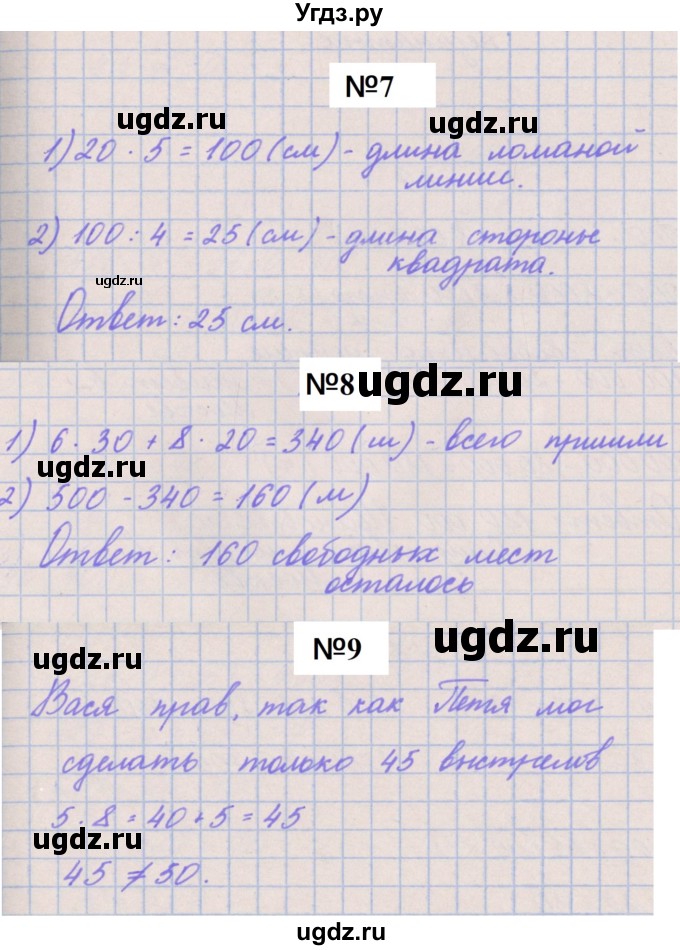 Угдз.ру
№7
ugdz.ru ugdz.ru
1) 20 · 5 = 100 (см) - длина ломаной
линии.
2) 100 : 4 = 25 (см) - длина стороны
квадрата.
ugdz.ru
Ответ: 25 см.
№8 ugdz.ru
1) 6 · 30 + 8 · 20 = 340 (ш) - всего пришили
ugdz.ru
2) 500 - 340 = 160 (м)
Ответ: 160 свободных мест
осталось
ugdz.ru
№9
ugdz.ru
Вася прав, так как Петя мог
сделать только 45 выстрелов
5 · 8 = 40 + 5 = 45
ugdz.ru
45 ≠ 50.
ugdz.ru